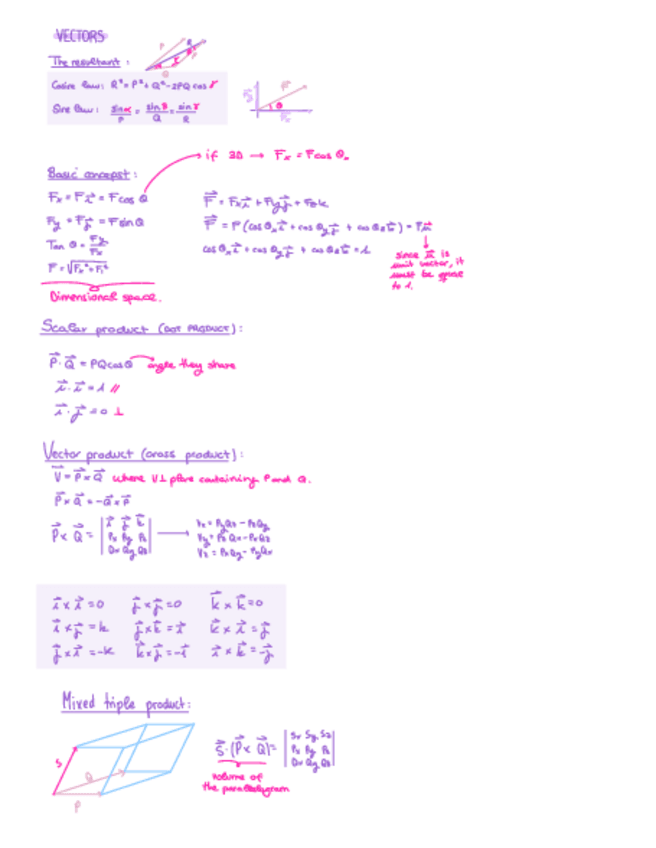 VECTORS
The resultant :
P R Q
Cosine law: R² = P² + Q² - 2PQ cos γ
Sine law: sin α / P = sin β / Q = sin γ / R
θ
if 3D → Fx = F cos θx
Basic concept :
Fx = F i = F cos θ
F = Fx i + Fy j + Fz k
Fy = F j = F sin θ
F = F (cos θx i + cos θy j + cos θz k) = Fu
Tan θ = Fy / Fx
cos θx i + cos θy j + cos θz k = 1
since u is unit vector, it
must be equal
to 1.
F = √Fx² + Fy²
Dimensional space.
Scalar product (DOT PRODUCT) :
P · Q = PQ cos θ angle they share
i · i = 1 //
i · j = 0 ⊥
Vector product (cross product) :
V = P × Q where V ⊥ plane containing P and Q.
P × Q = -Q × P
P × Q = | i j k | → Vx = PyQz - PzQy
Px Py Pz Vy = PzQx - PxQz
Qx Qy Qz Vz = PxQy - PyQx
i × i = 0 j × j = 0 k × k = 0
i × j = k j × k = i k × i = j
j × i = -k k × j = -i i × k = -j
Mixed triple product:
S · (P × Q) = | Sx Sy Sz |
Px Py Pz
Qx Qy Qz
volume of
the parallelogram
S
Q
P